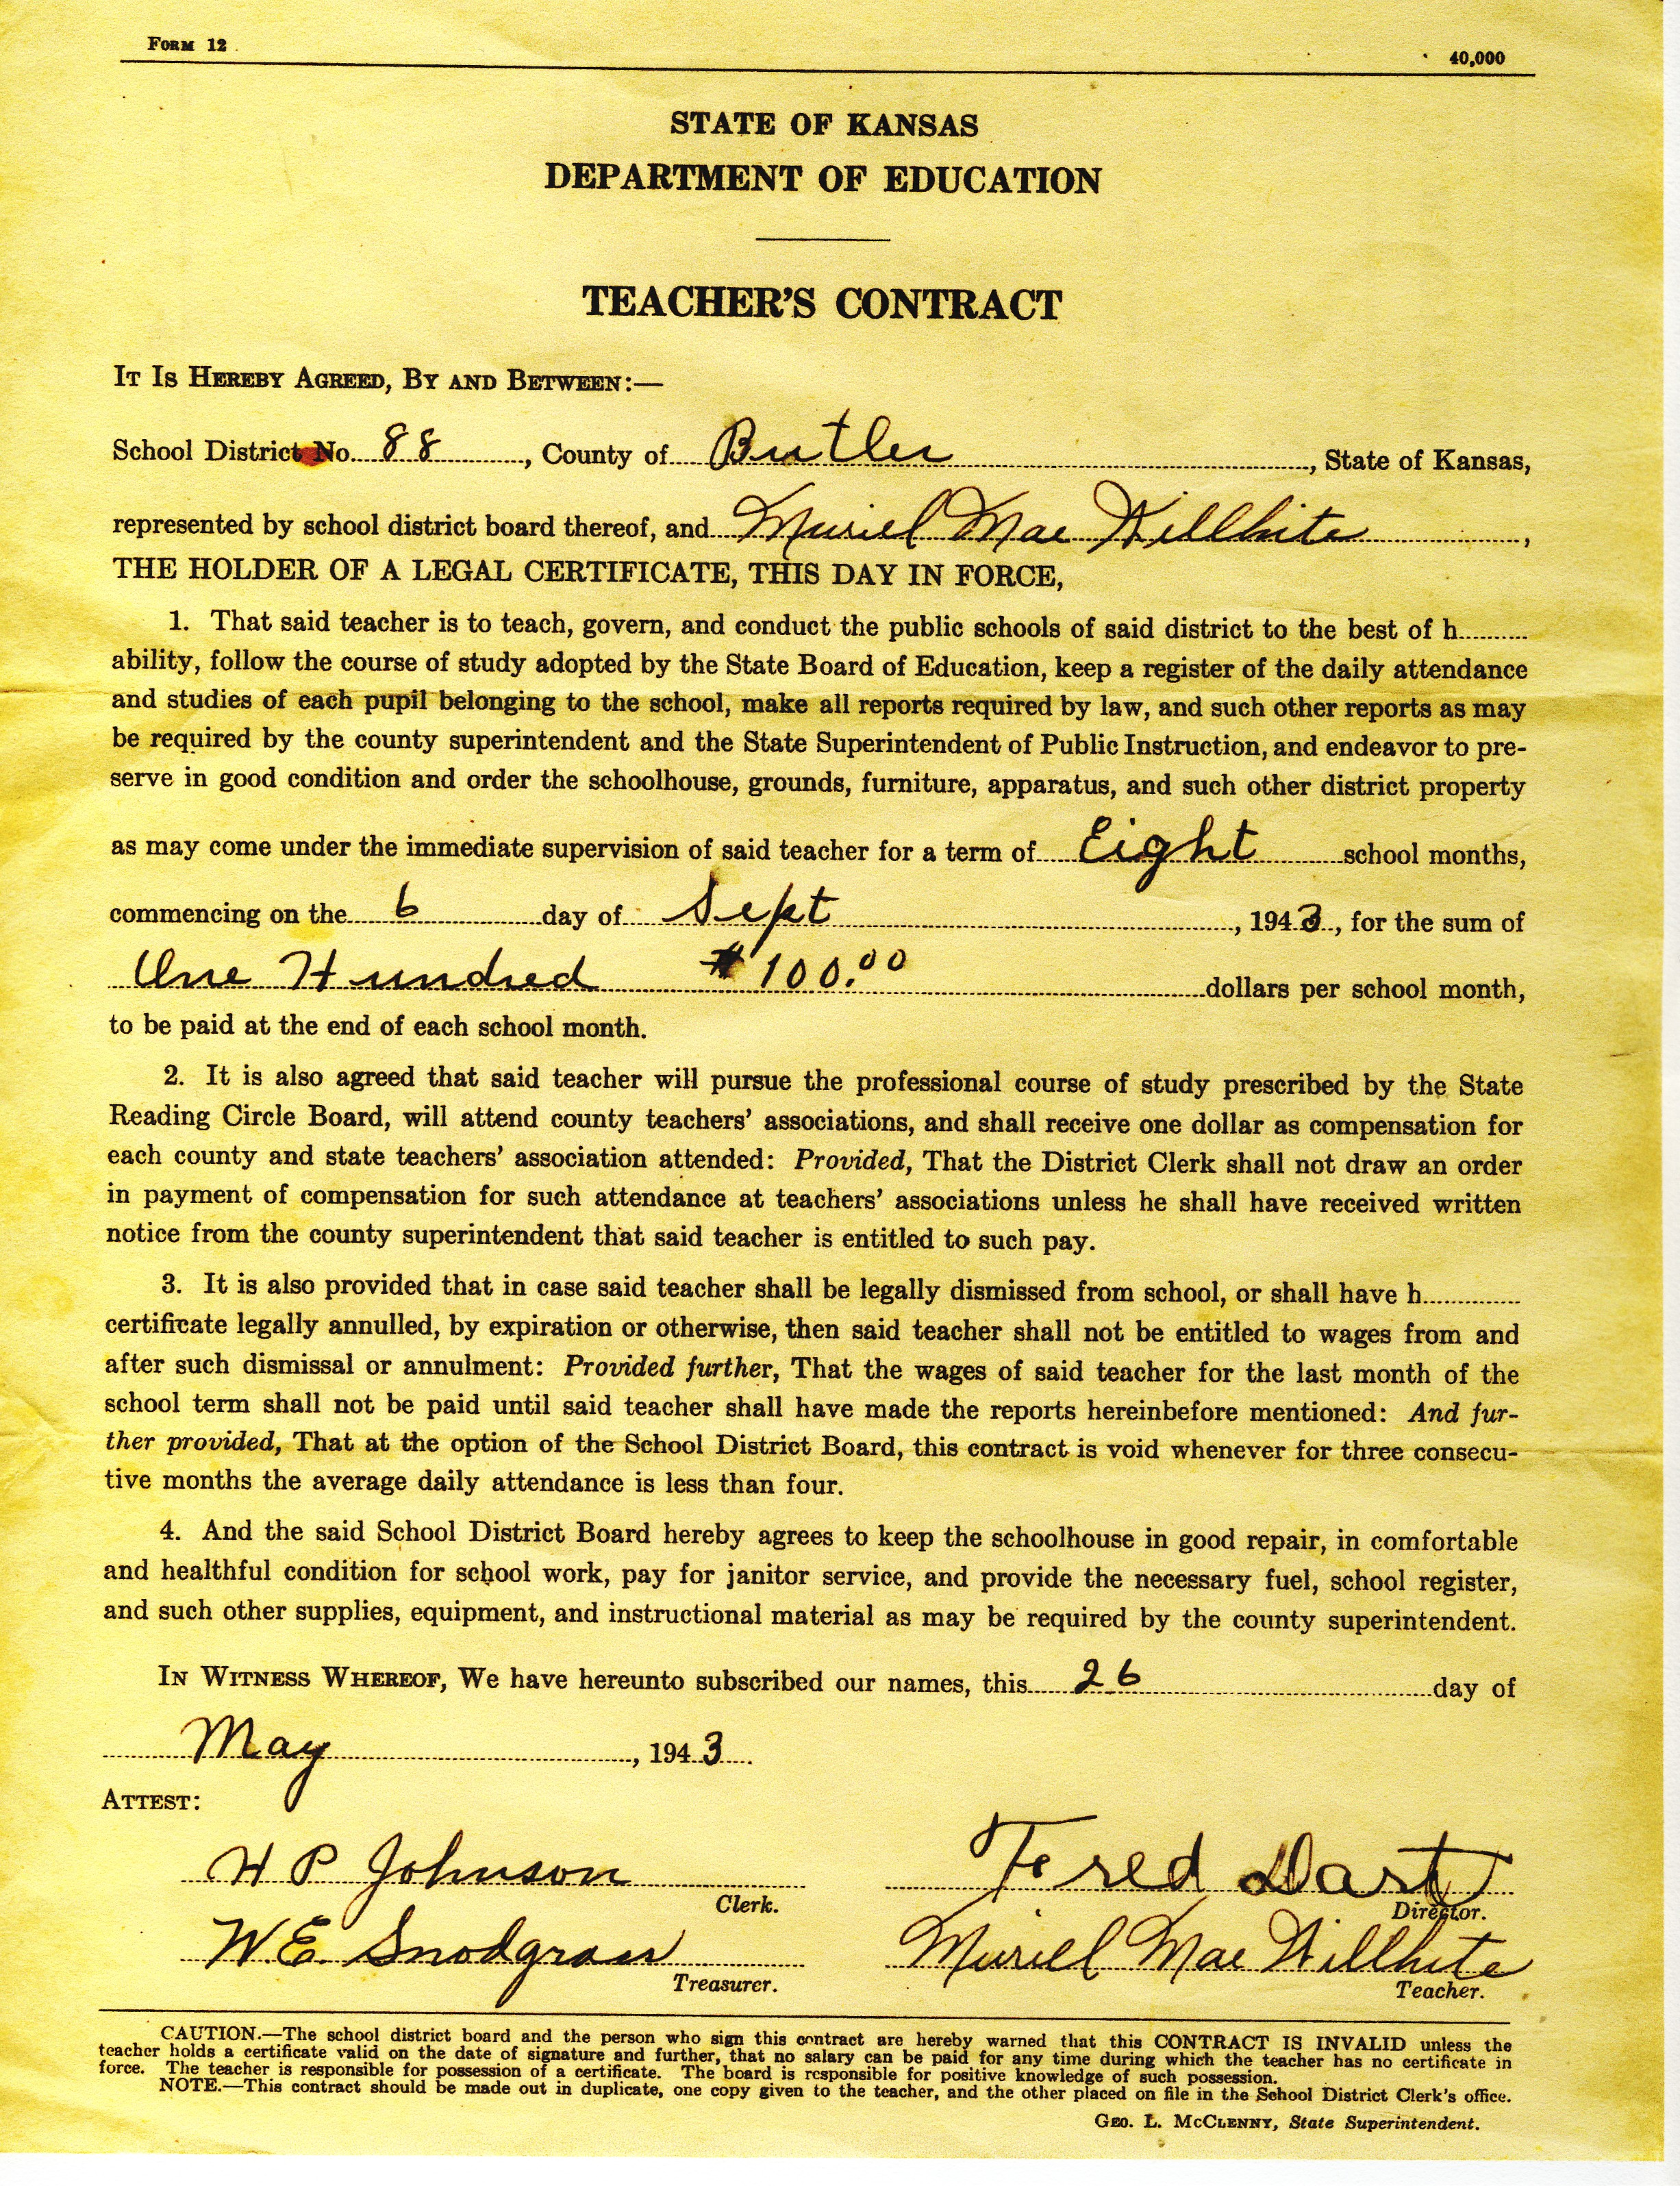 FORM 12
40,000
STATE OF KANSAS
DEPARTMENT OF EDUCATION
TEACHER'S CONTRACT
IT IS HEREBY AGREED, BY AND BETWEEN:—
School District No. 88, County of Butler, State of Kansas,
represented by school district board thereof, and Muriel Mae Willhite,
THE HOLDER OF A LEGAL CERTIFICATE, THIS DAY IN FORCE,
1. That said teacher is to teach, govern, and conduct the public schools of said district to the best of h.........
ability, follow the course of study adopted by the State Board of Education, keep a register of the daily attendance
and studies of each pupil belonging to the school, make all reports required by law, and such other reports as may
be required by the county superintendent and the State Superintendent of Public Instruction, and endeavor to pre-
serve in good condition and order the schoolhouse, grounds, furniture, apparatus, and such other district property
as may come under the immediate supervision of said teacher for a term of Eight school months,
commencing on the 6 day of Sept, 1943, for the sum of
One Hundred $100.00 dollars per school month,
to be paid at the end of each school month.
2. It is also agreed that said teacher will pursue the professional course of study prescribed by the State
Reading Circle Board, will attend county teachers' associations, and shall receive one dollar as compensation for
each county and state teachers' association attended: Provided, That the District Clerk shall not draw an order
in payment of compensation for such attendance at teachers' associations unless he shall have received written
notice from the county superintendent that said teacher is entitled to such pay.
3. It is also provided that in case said teacher shall be legally dismissed from school, or shall have h............
certificate legally annulled, by expiration or otherwise, then said teacher shall not be entitled to wages from and
after such dismissal or annulment: Provided further, That the wages of said teacher for the last month of the
school term shall not be paid until said teacher shall have made the reports hereinbefore mentioned: And fur-
ther provided, That at the option of the School District Board, this contract is void whenever for three consecu-
tive months the average daily attendance is less than four.
4. And the said School District Board hereby agrees to keep the schoolhouse in good repair, in comfortable
and healthful condition for school work, pay for janitor service, and provide the necessary fuel, school register,
and such other supplies, equipment, and instructional material as may be required by the county superintendent.
IN WITNESS WHEREOF, We have hereunto subscribed our names, this 26 day of
May, 1943.
ATTEST:
H P Johnson
Clerk.
Fred Dart
Director.
W. E. Snodgrass
Treasurer.
Muriel Mae Willhite
Teacher.
CAUTION.—The school district board and the person who sign this contract are hereby warned that this CONTRACT IS INVALID unless the
teacher holds a certificate valid on the date of signature and further, that no salary can be paid for any time during which the teacher has no certificate in
force. The teacher is responsible for possession of a certificate. The board is responsible for positive knowledge of such possession.
NOTE.—This contract should be made out in duplicate, one copy given to the teacher, and the other placed on file in the School District Clerk's office.
GEO. L. MCCLENNY, State Superintendent.